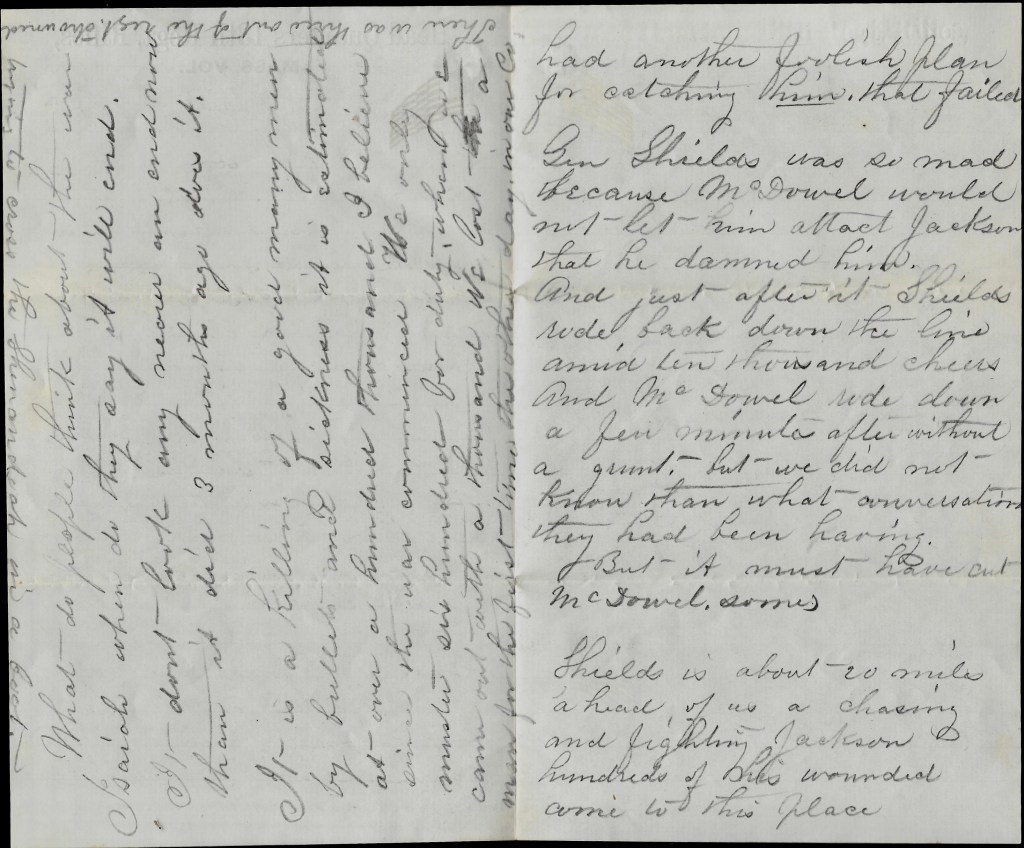 had another foolish plan
for catching him. that failed
Gen Shields was so mad
because McDowel would
not let him attact Jackson
that he damned him.
And just after it Shields
rode back down the line
amid ten thousand cheers
And McDowel rode down
a few minute after without
a grunt. but we did not
know than what conversation
they had been having.
But it must have cut
McDowel. some
Shields is about 20 miles
ahead of us a chasing
and fighting Jackson
hundreds of his wounded
come to this place
What do people think about the war
Isaiah when do they say it will end.
It dont look any nearer an end now
than it did 3 months ago does it.
It is a killing of a good many men
by bullets and sickness it is estimated
at over a hundred thousand I believe
since the war commenced We only
muster six hundred for duty when we
came out with a thousand We lost a
man for the first time the other day in our Co
Then was three out of the regt. drowned
trying to cross the Shanandoah in a boat.